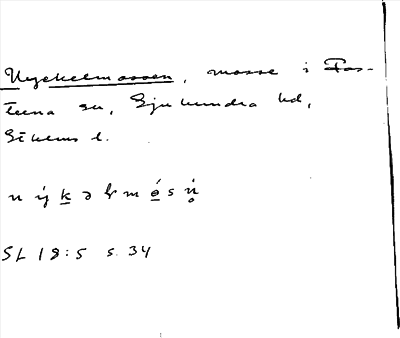 Nyckelmossen, mosse i Fas-
terna sn, Sjuhundra hd,
Sthlms l.
n ý k ə l m ó s n̥
SL 18:5 s. 34